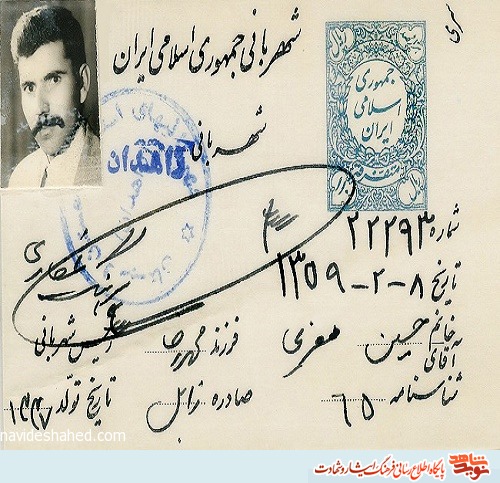 شهربانی جمهوری اسلامی ایران
شهربانی
زاهدان
ریال
جمهوری
اسلامی
ایران
شماره ۲۲۲۹۳
تاریخ ۸-۲-۱۳۵۹
به خانم آقای حسین صغری فرزند مهررضا رئیس شهربانی
شناسنامه ۶۵ صادره زابل تاریخ تولد ۱۳۳۷
navideshahed.com
نوید شاهد
پایگاه اطلاع رسانی فرهنگ ایثار و شهادت